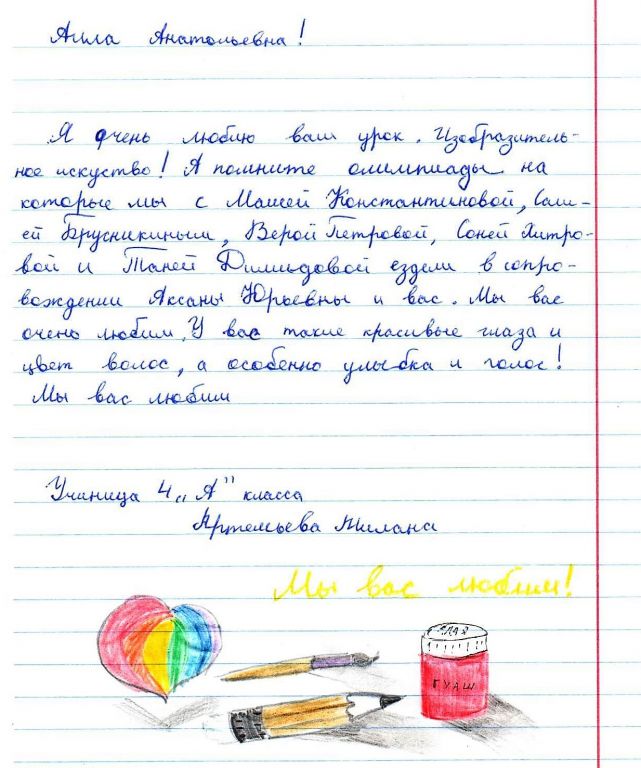 Алла Анатольевна!
Я очень люблю ваш урок. Изобразитель-
ное искуство! А помните олимпиады на
которые мы с Машей Константиновой, Саш-
ей Брусникиным, Верой Петровой, Соней Хитро-
вой и Таней Димидовой ездели в сопро-
вождении Аксаны Юрьевны и вас. Мы вас
очень любим. У вас такие красивые глаза и
цвет волос, а особенно улыбка и голос!
Мы вас любим
Ученица 4 „А" класса
Артемьева Милана
Мы вас любим!
ГУАШ